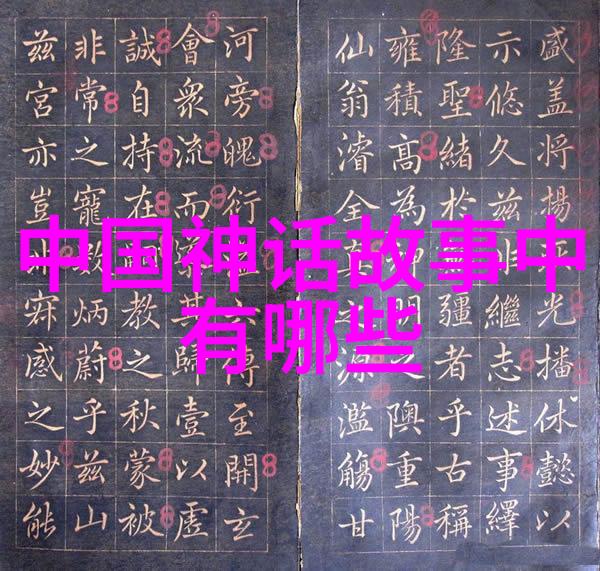 中国神话故事中
有哪些
盛盖将揚光播休懿以
示悠久兹非繼志述事繹
隆聖緒於疆者乎古稱
雍積高為之隩重陽
仙翁濬全真之源濫觴甘
河旁魄衍傳至開玄
會衆流而其歸壹以虛
誠自持在教之秋蒙被
非常之寵數炳蔚乎兹山
兹宮亦豈非感之妙能